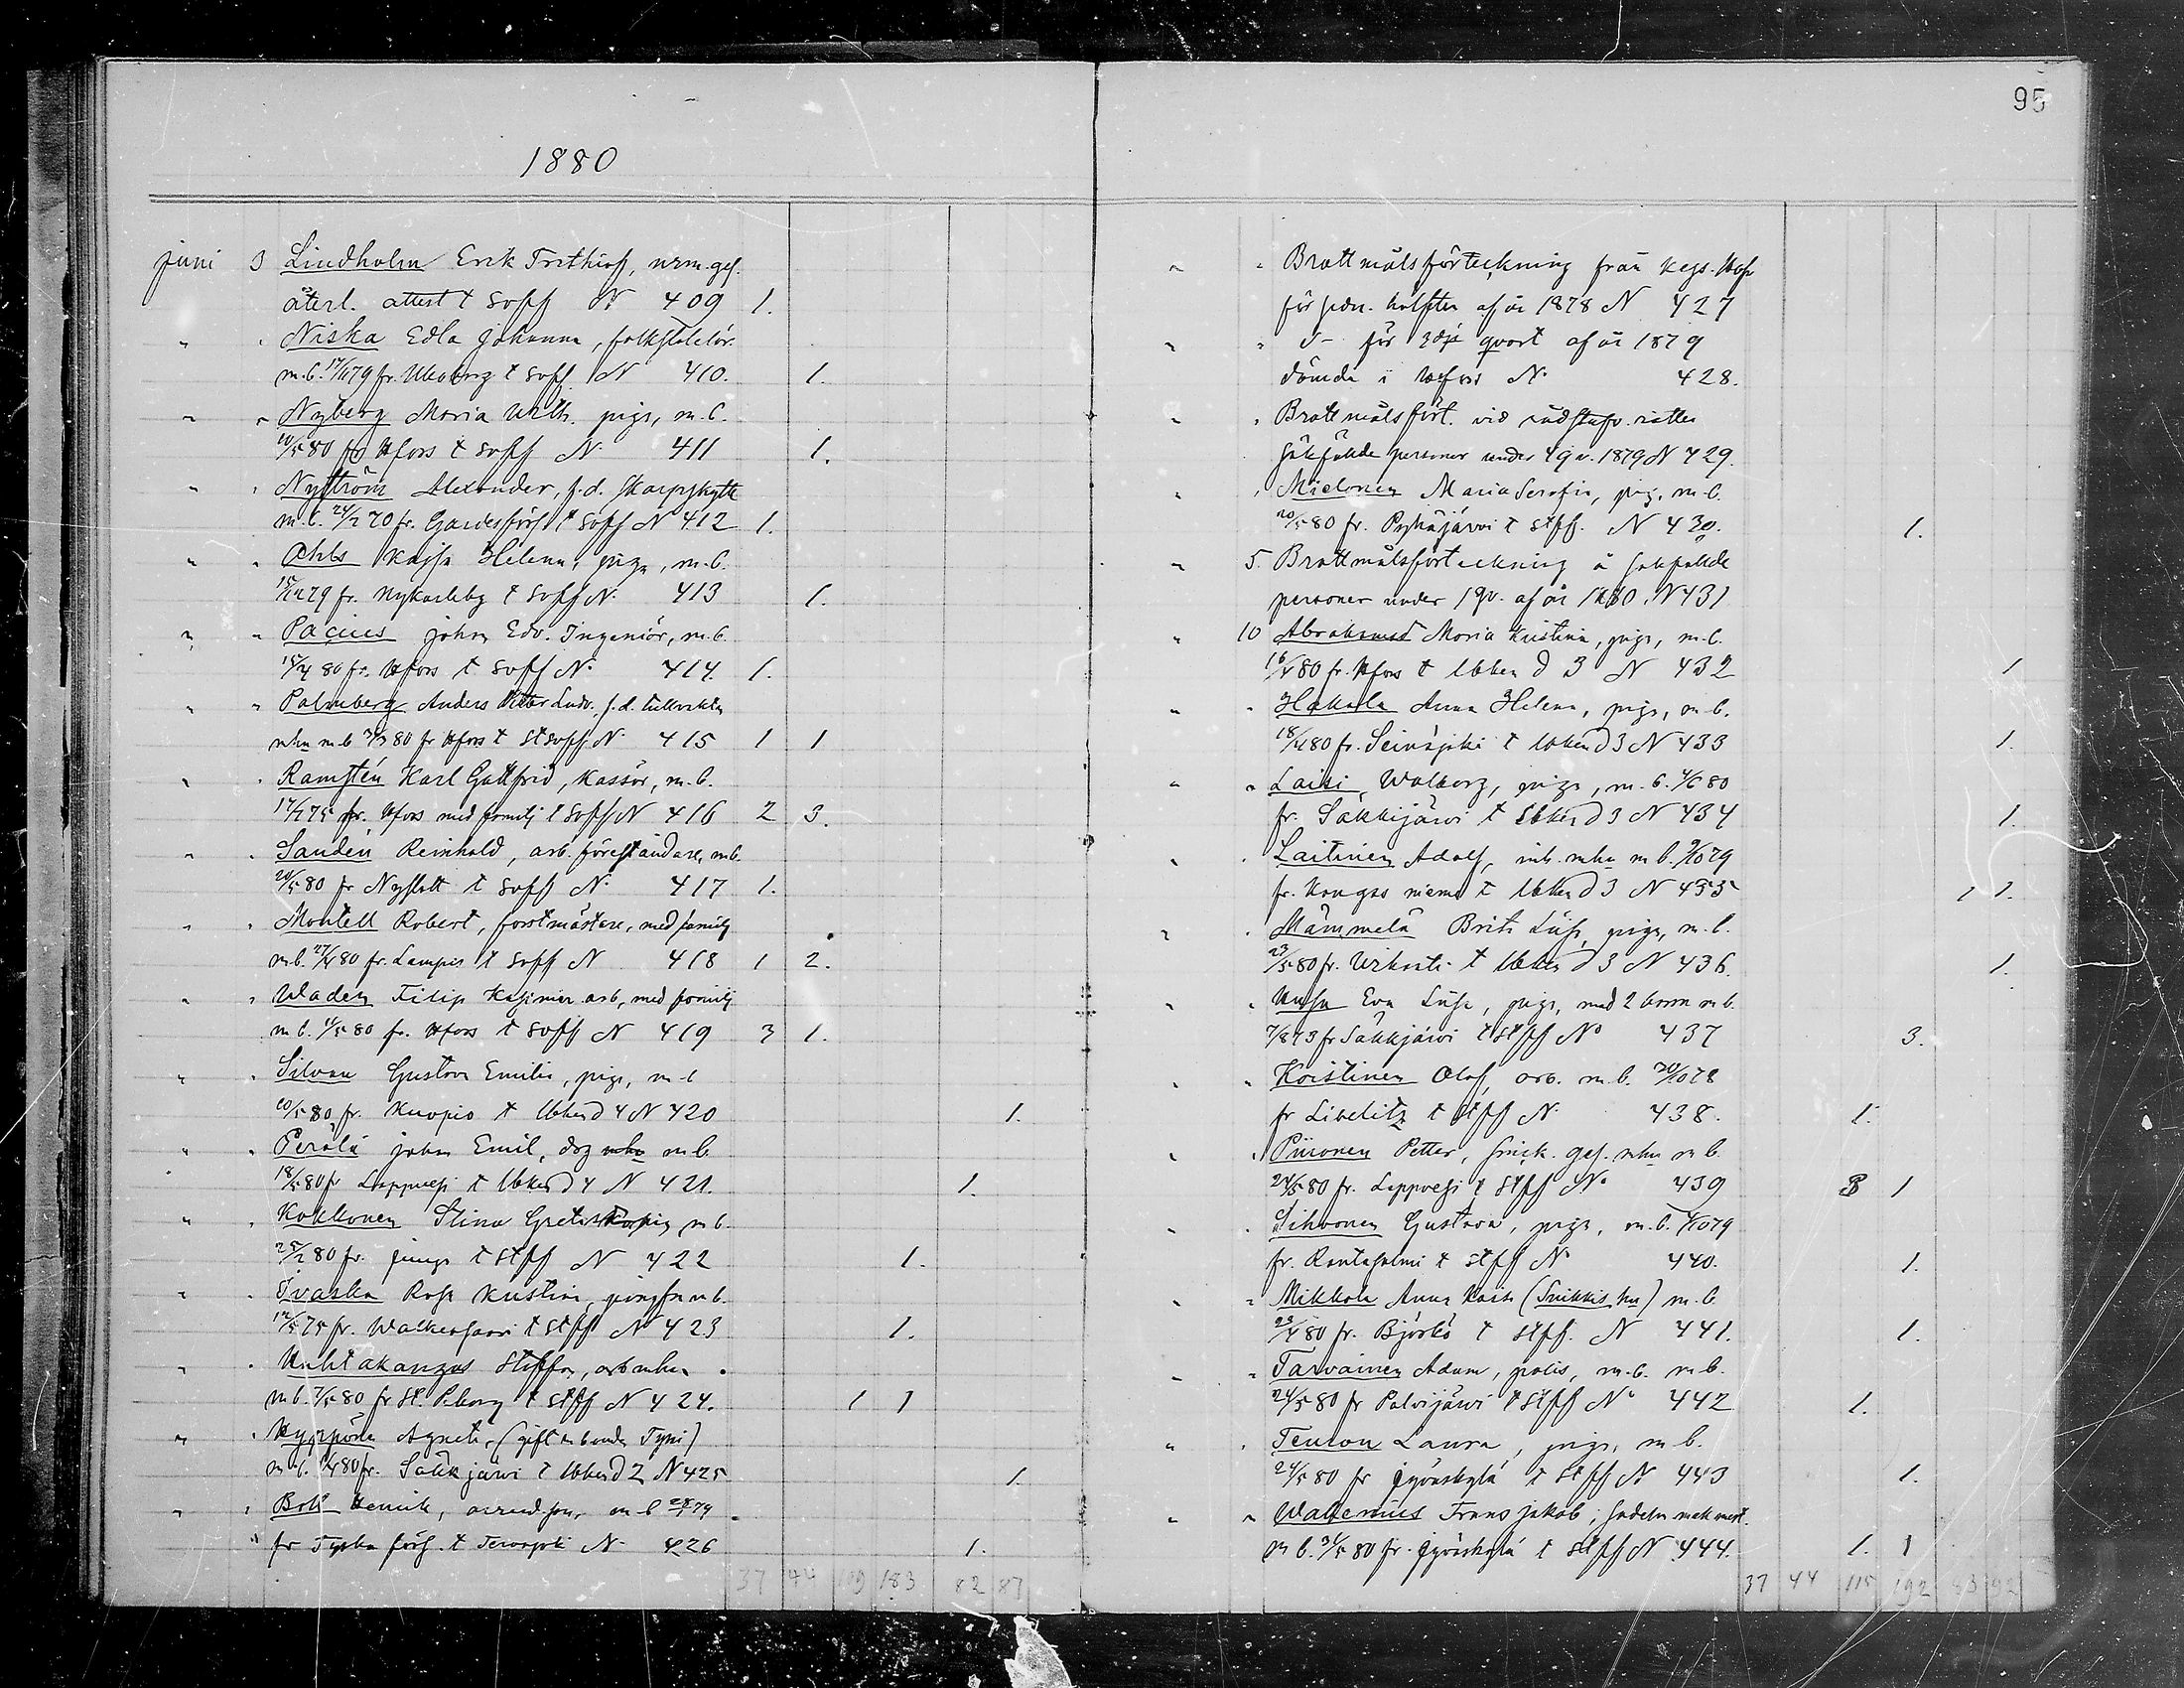 95
1880
juni 3 Lindholm Erik Frithiof,
återl. attest t Svff N 409 1.
" " Niska Edla Johanna,
m.b. 17/11 79 fr. Uleåborg t Svff N 410. 1.
" " Nyberg Maria Wilh. piga, m.b.
10/5 80 fr Hfors t Svff N 411 1.
" " Nyström Alexander, f.d. Skarpskytt
m.b. 24/2 70 fr. Gardesförs t Svff N 412 1.
" " Ohls Kajsa Helena, piga, m.b.
15/11 79 fr. Nykarleby t Svff N. 413 1.
" " Pacius John Edv. Ingeniör, m.b.
15/4 80 fr. Hfors t Svff N. 414. 1.
" " Palmberg Anders Ludv. f.d.
mhu m.b 3/3 80 fr Hfors t StSvff N. 415 1 1
" " Ramstén Karl Gottfrid, Kassör, m.b.
17/7 75 fr. Hfors med familj t Svff N 416 2 3.
" " Sandén Reinhold, arb. föreståndare, m.b.
20/5 80 fr Nyslott t Svff N. 417 1.
" " Montell Robert, forstmästare, med familj
m.b. 27/4 80 fr. Lampis t Svff N 418 1 2.
" " Waden Filip Kasimir arb, med familj
m.b. 11/5 80 fr. Hfors t Svff N 419 3 1.
" " Silvan Gustava Emilia, piga, m.b
20/5 80 fr. Kuopio t lbken d 4 N 420 1.
" " Perälä Johan Emil, drg mhu m b.
18/5 80 fr Lappvesi t lbken d 4 N 421. 1.
" " Kokkonen Stina Greta piga m b.
25/2 80 fr. Junga t Stff N 422 1.
" " Ivaska Rosa Kristina, m.b.
12/5 75 fr. Walkeasaari t Stff N 423 1.
" " Uuhtakangas Staffan, arb mhu
m b. 7/5 80 fr St. P.borg t Stff N 424. 1 1
" " Agneta, (gift m bonden Tyni)
m.b. 80 fr. Säkkjärvi t lbken d 2 N 425 1.
" " Boli Henrik, m b 79
" fr Tyska förs. t Tervajoki N. 426 1.
37 44 109 183 82 87
" " Brottmålsförteckning från Kejs. Hofr
för sedn. hälften af år 1878 N 427
" " d- för 3dje qvart af år 1879
dömda i N. 428.
" " Brottmålsfört. vid rådstufv. rätten
sakfälde personer under 4 qv. 1879 N 429.
" " Mielonen Maria Serafia, pig, m.b.
20/5 80 fr. Pyhäjärvi t Stff. N 430. 1.
" 5. Brottmålsförteckning å sakfälde
personer under 1 qv. af år 1880. N 431
" 10 Maria Kristina, piga, m.b.
16/4 80 fr. Hfors t lbken d 3 N 432 1
" " Hakala Anna Helena, piga, m b.
18/4 80 fr. Seinäjoki t lbken d 3 N 433 1.
" " Laiki, Walborg, piga, m.b. 4/6 80
fr. Säkkijärvi t lbken d 3 N 434 1.
" " Laitinen Adolf, inh. mhu m b. 9/10 79
fr. Kangasniemi t lbken d 3 N 435 1 1.
" " Mämmelä Brita Lisa, piga, m.b.
23/5 80 fr. t lbken d 3 N 436. 1.
" " Eva Lisa, piga, med 2 barn m b.
7/8 73 fr Säkkjärvi t Stff No 437 3.
" " Koistinen Olof, arb. m.b. 20/10 78
fr Libelitz t Stff N. 438. 1.
" " Piironen Petter, snick. ges. mhu m b.
24/5 80 fr. Lappvesi t Stff No 439 1
" " Sihvonen Gustava, piga, m.b. 79
fr. Rantasalmi t Stff No 440. 1.
" " Mikkola Anna Kaisa (Snikkis hu) m.b.
23/4 80 fr. Björkö t Stff. N 441. 1.
" " Tarvainen Adam, polis, m.b. m b.
24/5 80 fr Polvijärvi t Stff No 442 1.
" " Tenton Laura, piga, m b.
24/5 80 fr Jyväskylä t Stff N 443 1.
" " Walenius Frans Jakob,
m b. 31/5 80 fr. Jyväskylä t Stff N 444. 1. 1
37 44 115 192 83 92